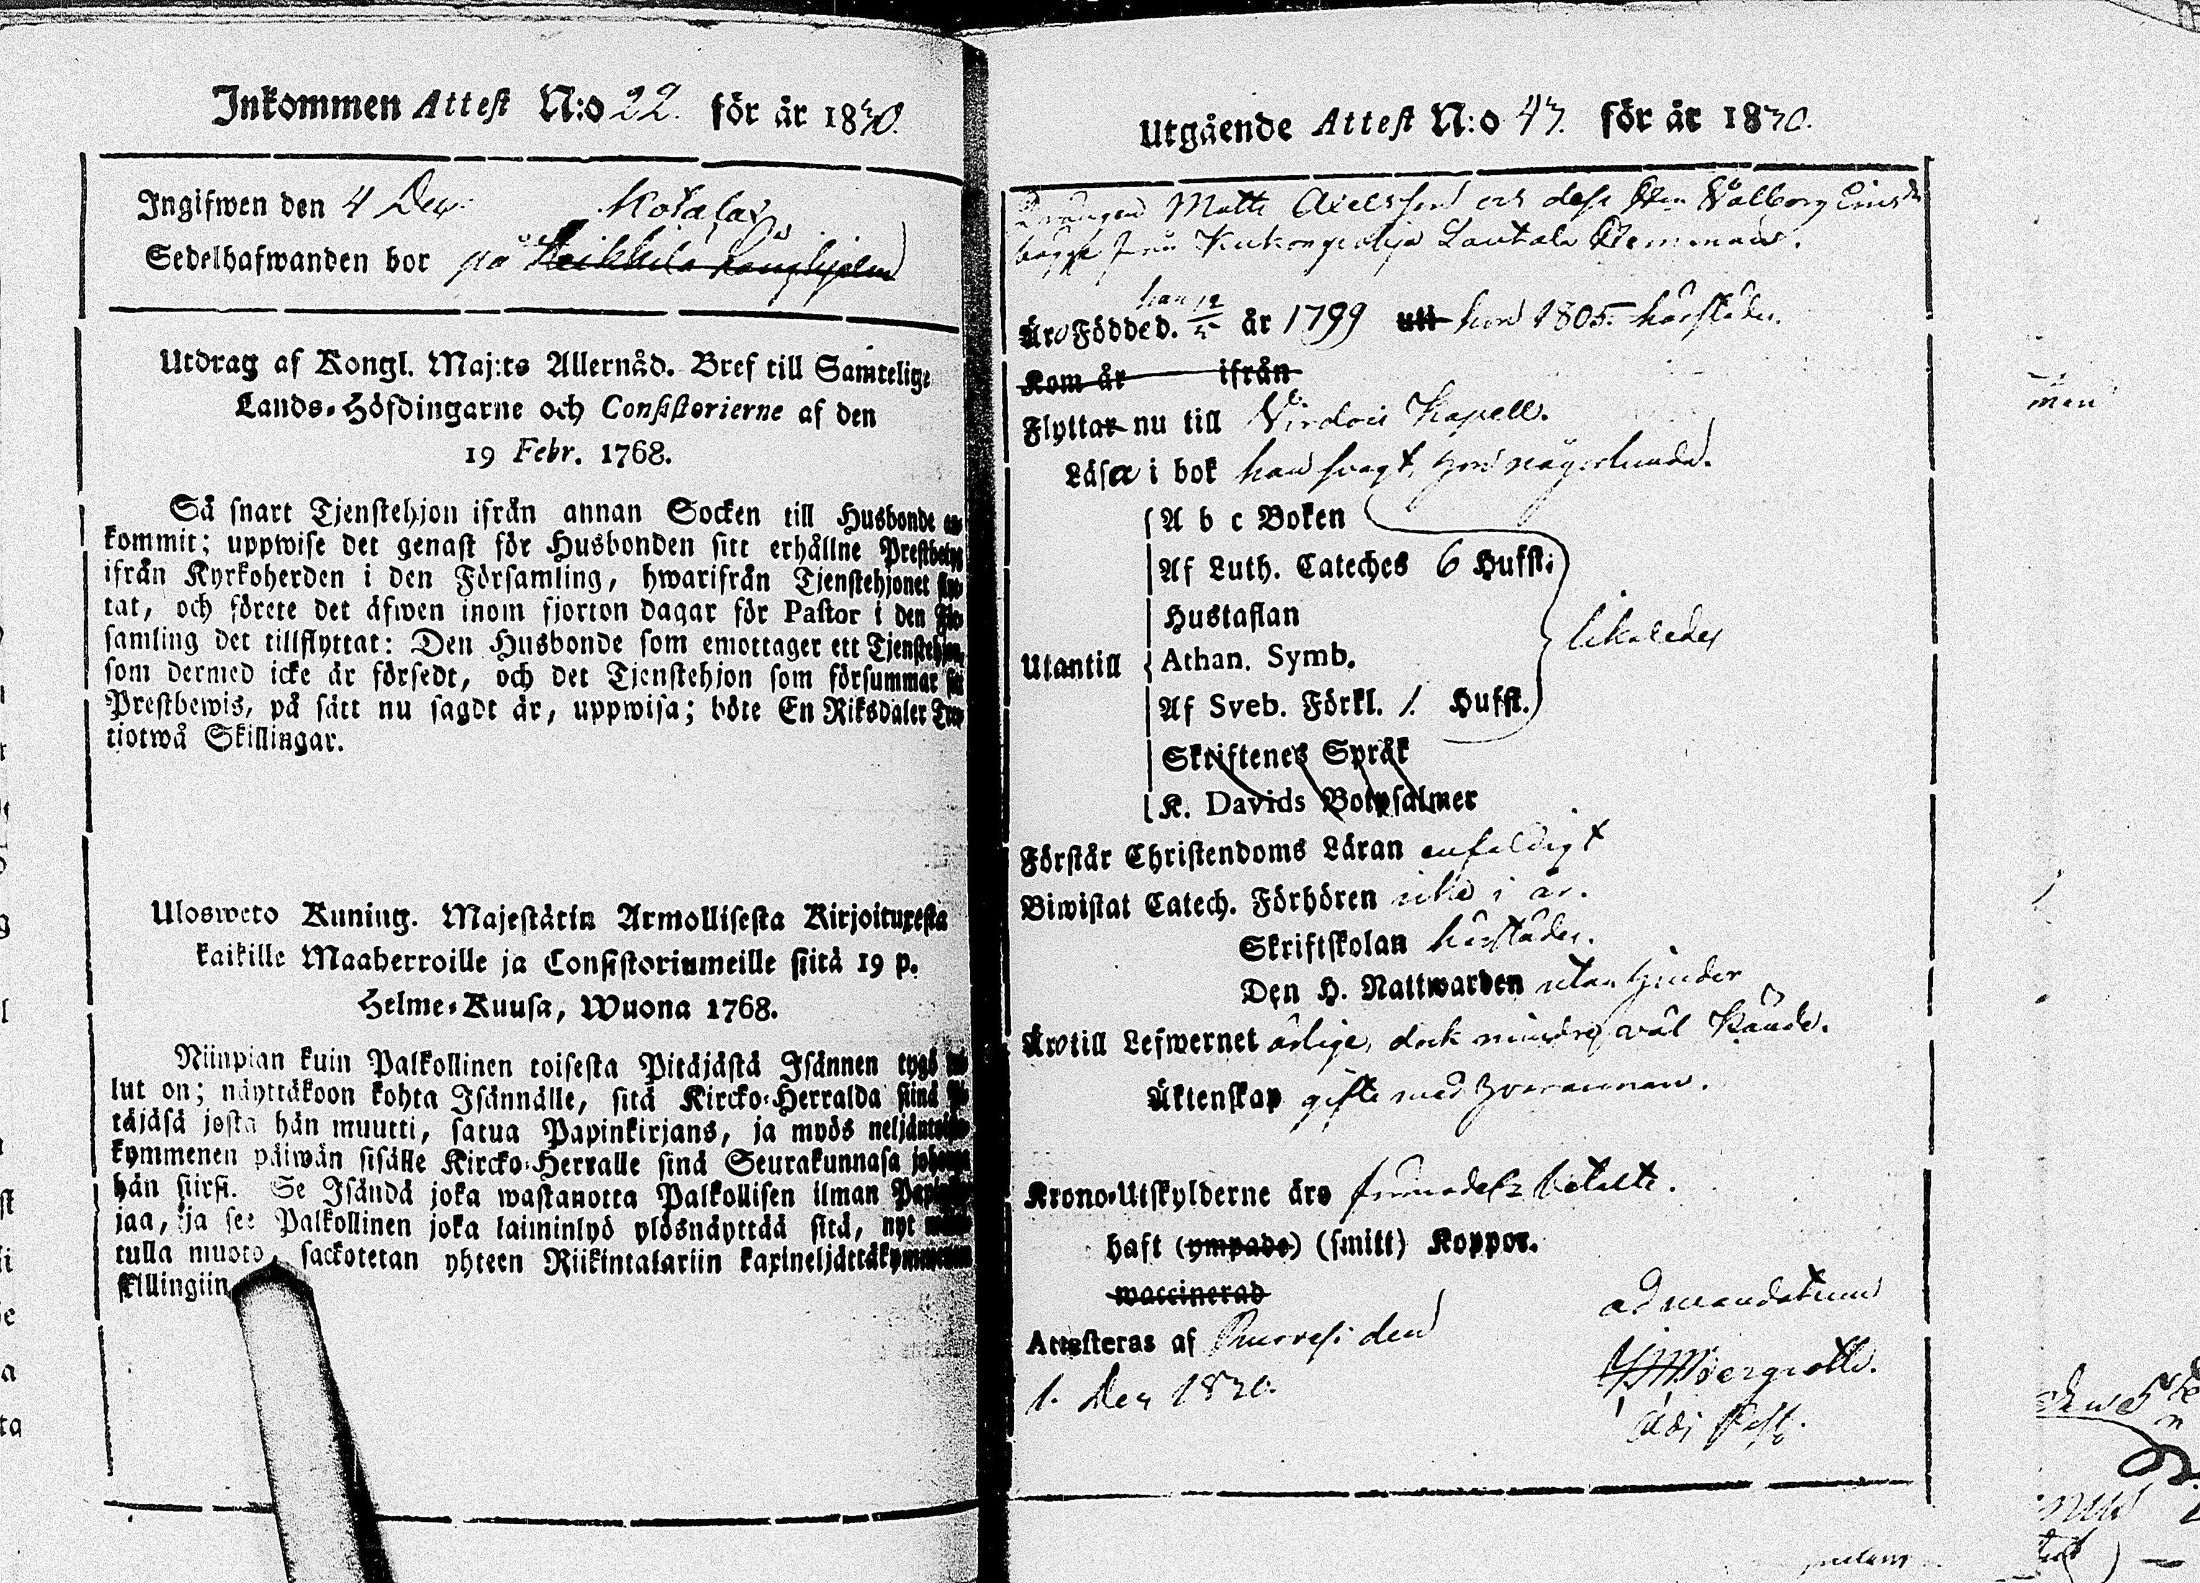 Inkommen Attest N:o 22. för år 1830.
Ingifwen den 4 Dec.
Kotala
Sedelhafwanden bor på Heikkilä
Utdrag af Kongl. Maj:ts Allernåd. Bref till Samtelige
Lands-Höfdingarne och Consistorierne af den
19 Febr. 1768.
Så snart Tjenstehjon ifrån annan Socken till Husbonde
kommit; uppwise det genast för Husbonden sitt erhållne Prestbetyg
ifrån Kyrkoherden i den Församling, hwarifrån Tjenstehjonet
tat, och förete det äfwen inom fjorton dagar för Pastor i den
samling det tillflyttat: Den Husbonde som emottager ett Tjenstehjon,
som dermed icke är försedt, och det Tjenstehjon som försummar
Prestbewis, på sätt nu sagdt är, uppwisa; böte En Riksdaler
tiotwå Skillingar.
Ulosweto Kuning. Majestätin Armollisesta Kirjoituxesta
kaikille Maaherroille ja Consistoriumeille siitä 19 p.
Helme-Kuusa, Wuona 1768.
Niinpian kuin Palkollinen toisesta Pitäjästä Isännen tygö
lut on; näyttäkoon kohta Isännälle, sitä Kircko-Herralda siinä
täjäsä josta hän muutti, saatua Papinkirjans, ja myös neljäntoista
kymmenen päiwän sisälle Kircko-Herralle sinä Seurakunnasa johonga
hän siirsi. Se Isändä joka wastanotta Palkollisen ilman
jaa, ja se Palkollinen joka laiminlyö ylösnäyttää sitä, nyt
tulla muoto, sackotetan yhteen Riikintalariin kaxineljättäkymmenen
skillingiin
Utgående Attest N:o 43. för år 1830.
Drängen Matts Axelsson och dess Hu Walborg
bägge från Lautala Hemman.
han 12/5
Äro Födde d. år 1799 uti hon 1805. härstädes.
Kom år ifrån
Flyttar nu till Virdois Kapell.
Läsa i bok han svagt, hon någorlunda.
A b c Boken
Af Luth. Cateches 6 Hufst:
Hustaflan
Utantill Athan. Symb. likaledes
Af Sveb. Förkl. 1. Hufst.
Skriftenes Språk
K. Davids Botpsalmer
Förstår Christendoms Läran enfaldigt
Biwistat Catech. Förhören icke i år.
Skriftskolan härstädes.
Den H. Nattwarden utan hinder
Äro till Lefwernet ärlige, dock mindre wäl kände.
Äktenskap gifte med hvarannan.
Krono-Utskylderne äro betalte.
haft (ympade) (smitt) Koppor.
waccinerad
ad mandatum
Attesteras af Ruovesi den
1. Dec 1830.
Adj Past.